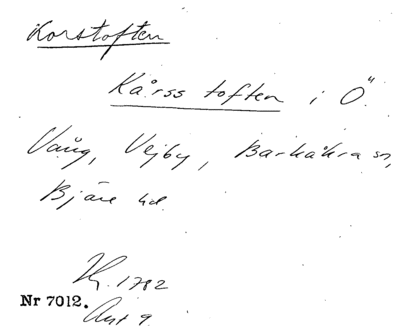 Korstoften
Kårss toften i Ö.
Vång, Vejby, Barkåkra sn,
Bjäre hd.
1782
Nr 7012.
Akt 9.